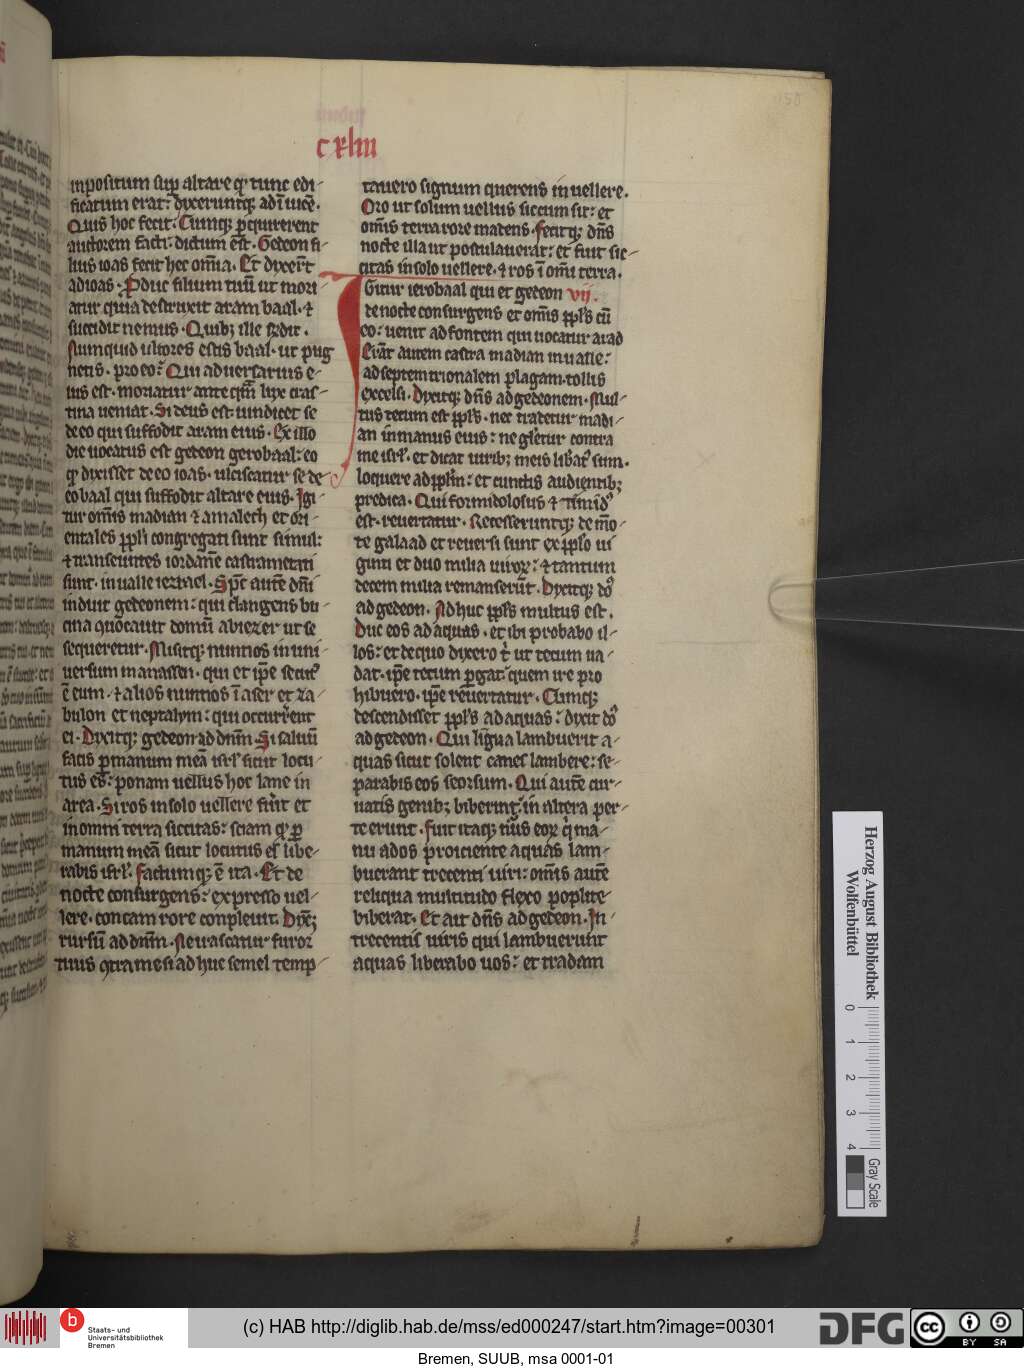 cxliii
inpositum sup altare qđ tunc edi-
ficatum erat: dyxeruntqꝫ adīuicē.
Quis hoc fecit. Cumqꝫ ꝑquirerent
auctorem facti: dictum ēst. Gedeon fi-
lius ioas fecit hec om̄ia. Et dyxert̄
ad ioas. Produc filium tuū ut mori-
atur quia destruxit aram baal. ⁊
succidit nemus. Quibꝫ ille r̄ndit.
Numquid ultores estis baal. ut pug
netis. pro eo: Qui aduersarius e-
ius est. moriatur ante qm̄ lux cras-
tina ueniat. Si deus est uindicet se
de eo qui suffodit aram eius. Ex illo
die uocatus est gedeon gerobaal: eo
qđ dixisset de eo ioas. ulciscatur se de
eo baal qui suffodit altare eius. Igi-
tur om̄is madian ⁊ amalech et ori-
entales ppl̓i congregati sunt simul:
⁊ transeuntes iordanē castrametati
sunt. in ualle iezrael. Sp̄c autē dn̄i
induit gedeonem: qui clangens bu-
cina cuocauit domū abiezer ut se
sequeretur. Misitqꝫ nuntios in uni-
uersum manassen. qui et ip̄e secutꝰ
ē eum. ⁊ alios nuntios ī aser et za-
bulon et neptalym: qui occurrerent
ei. Dyxitqꝫ gedeon ad dn̄m. Si saluū
facis ꝑ manum meā isrl̓ sicut locu-
tus es: ponam uellus hoc lane in
area. Si ros in solo uellere fuīt et
in omni terra siccitas: sciam qđ ꝑ
manum meā sicut locutus es̓ libe-
rabis isrl̓. Factumqꝫ ē ita. Et de
nocte consurgens: expresso uel-
lere. concam rore conpleuit. Dyxꝫ
rursū ad dn̄m. Ne irascatur furor
tuus cͣtra me si ad huc semel temp-
tauero signum querens in uellere.
Oro ut solum uellus siccum sit: et
om̄is terra rore madens. Fecitqꝫ dn̄s
nocte illa ut postulauerat: et fuit sic-
citas in solo uellere. ⁊ ros ī om̄i terra.
IGitur ierobaal qui et gedeon vij.
de nocte consurgens et om̄is ppl̓s cū
eo: uenit ad fontem qui uocatur arad
Erāt autem castra madian in ualle:
ad septemtrionalem plagam. collis
excelsi. Dyxitqꝫ dn̄s ad gedeonem. Mul-
tus tecum est ppl̓s. nec tradetur madi-
an in manus eius: ne gl̄etur contra
me isrl̓. et dicat uiribꝫ meis lib̓at̓ sum.
loquere ad ppl̓m: et cunctis audientibꝫ
predica. Qui formidolosus ⁊ timidꝰ
est. reuertatur. Recesseruntqꝫ de mō-
te galaad et reuersi sunt ex pplo ui
ginti et duo milia uiroꝝ: ⁊ tantum
decem milia remanserūt. Dyxitqꝫ dꝰ
ad gedeon. Ad huc ppl̓s multus est.
Duc eos ad aquas. et ibi probabo il-
los: et de quo dyxero t̓ ut tecum ua-
dat. ip̄e tecum ꝑgat quem ire pro
hibuero. ip̄e reuertatur. Cumqꝫ
descendisset ppl̓s ad aquas: dyxit dꝰ
ad gedeon. Qui lingua lambuerit a-
quas sicut solent canes lambere: se-
parabis eos seorsum. Qui autē cur-
uatis genibꝫ biberint: in altera per-
te erunt. Fuit itaqꝫ nūs eoꝝ q̓ ma-
nu ad os proiciente aquas lam-
buerant trecenti uiri: om̄is autē
reliqua multitudo flexo poplite
biberat. Et ait dn̄s ad gedeon. In-
trecentis uiris qui lambuerunt
aquas liberabo uos: et tradam
Herzog August Bibliothek
Wolfenbüttel
0 1 2 3 4
Gray Scale
b
Staats- und
Universitätsbibliothek
Bremen
(c) HAB http://diglib.hab.de/mss/ed000247/start.htm?image=00301
DFG
cc
BY SA
Bremen, SUUB, msa 0001-01